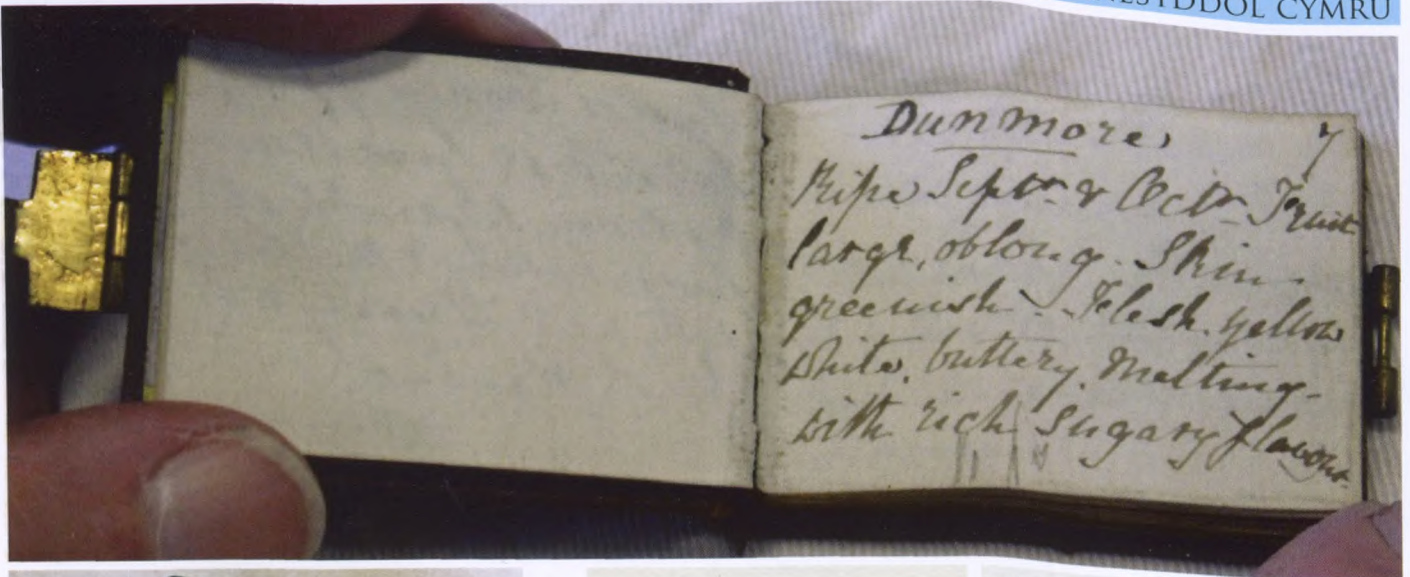 CYMRU
Dunmore, 7
Ripe Septr. & Octr. Fruit
large, oblong. Skin
greenish. Flesh. yellow
white, buttery, melting
with rich sugary flavour.